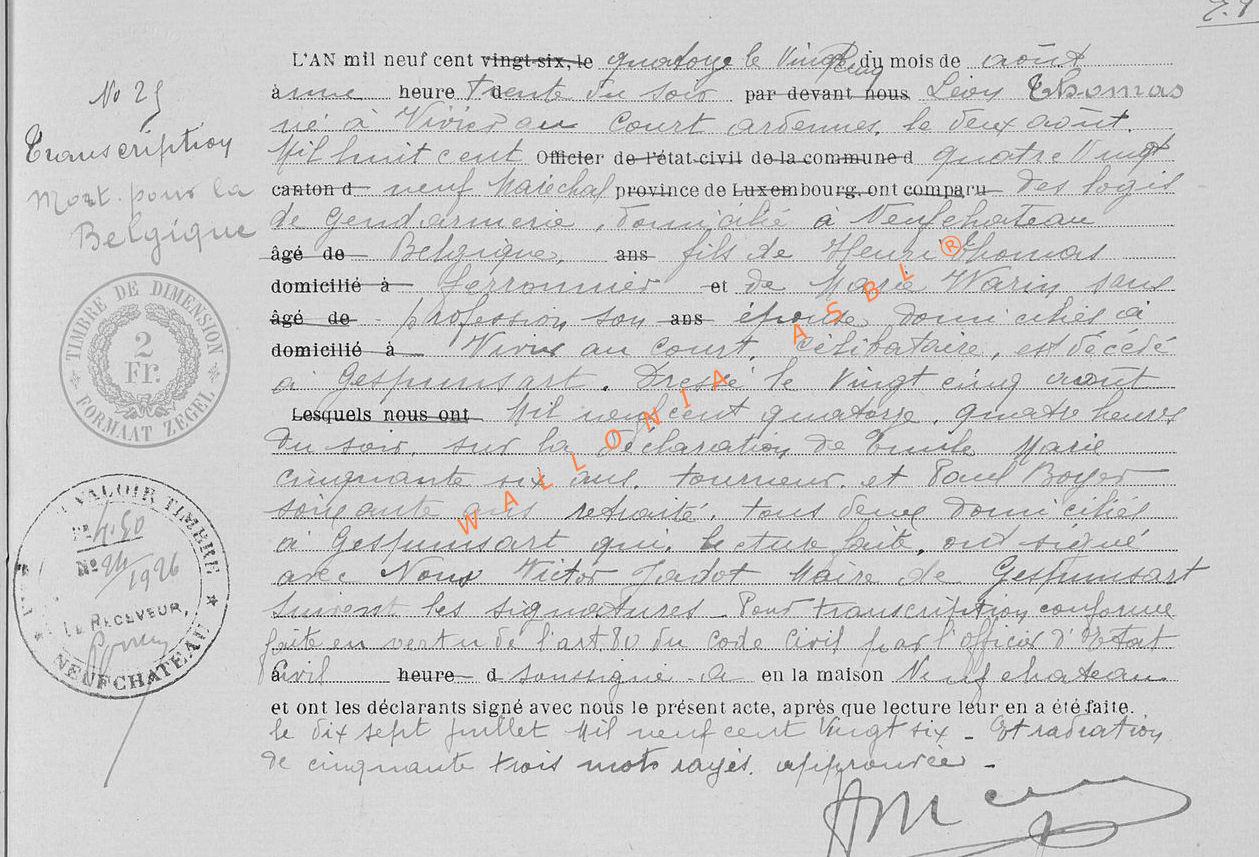 No 25
Transcription
Mort pour la
Belgique
TIMBRE DE DIMENSION
2
Fr.
FORMAAT ZEGEL
VALOIR TIMBRE
4.50
No 24
1926
LE RECEVEUR,
NEUFCHATEAU
L'AN mil neuf cent vingt-six, le quatorze le vingt du mois de août
à une heure trente du soir par devant nous Léon Thomas
né à Vivier au Court ardennes, le deux août.
Mil huit cent Officier de l'état-civil de la commune d quatre vingt
canton d neuf Maréchal province de Luxembourg, ont comparu des logis
de Gendarmerie, domicilié à Neufchateau
âgé de Belgique, ans fils de Henri Thomas
domicilié à Ferronnier et de Marie Warin sans
âgé de profession son ans épouse, domiciliés à
domicilié à Vivier au Court, célibataire, est décédé
à Gespunsart. Dressé le vingt cinq août
Lesquels nous ont Mil neuf cent quatorze, quatre heures
du soir, sur la déclaration de Emile Marie
cinquante six ans, tourneur, et Paul Boyer
soixante ans retraité, tous deux domiciliés
à Gespunsart qui, lecture faite, ont signé
avec Nous Victor Jadot Maire de Gespunsart
Suivent les signatures. Pour transcription conforme
faite en vertu de l'art 80 du Code Civil par l'officier d'Etat
à Civil heure d soussigné à en la maison Neufchateau
et ont les déclarants signé avec nous le présent acte, après que lecture leur en a été faite.
le dix sept juillet Mil neuf cent vingt six - Et radiation
de cinquante trois mots rayés, approuvée -
WALLONIA ASBL ®